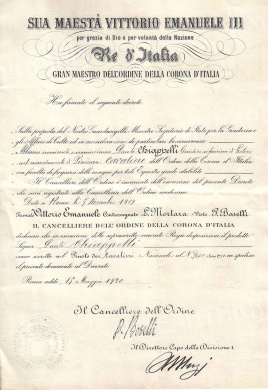 SUA MAESTÀ VITTORIO EMANUELE III
per grazia di Dio e per volontà della Nazione
Re d'Italia
GRAN MAESTRO DELL'ORDINE DELLA CORONA D'ITALIA
Ha firmato il seguente decreto
Sulla proposta del Nostro Guardasigilli, Ministro Segretario di Stato per la Giustizia e
gli Affari di Culto ed in considerazione di particolari benemerenze
Abbiamo nominato e nominiamo Chiappelli
Cavaliere dell'Ordine della Corona d'Italia
con facoltà di fregiarsi delle insegne per tale equestre grado stabilite.
Il Cancelliere dell'Ordine è incaricato dell'esecuzione del presente Decreto
che sarà registrato alla Cancelleria dell'Ordine medesimo.
Dato a Roma 1919
Firmato Vittorio Emanuele Controsegnato L. Mortara Visto P. Boselli
IL CANCELLIERE DELL'ORDINE DELLA CORONA D'ITALIA
dichiara che in esecuzione delle sopraescritte Regie disposizioni il predetto
Signor Chiappelli
venne inscritto nel Ruolo dei Cavalieri Nazionali al N. e
spedisce il presente documento al Decorato.
Roma addì Maggio 1920
Il Cancelliere dell'Ordine
P. Boselli
Il Direttore Capo della Divisione I.